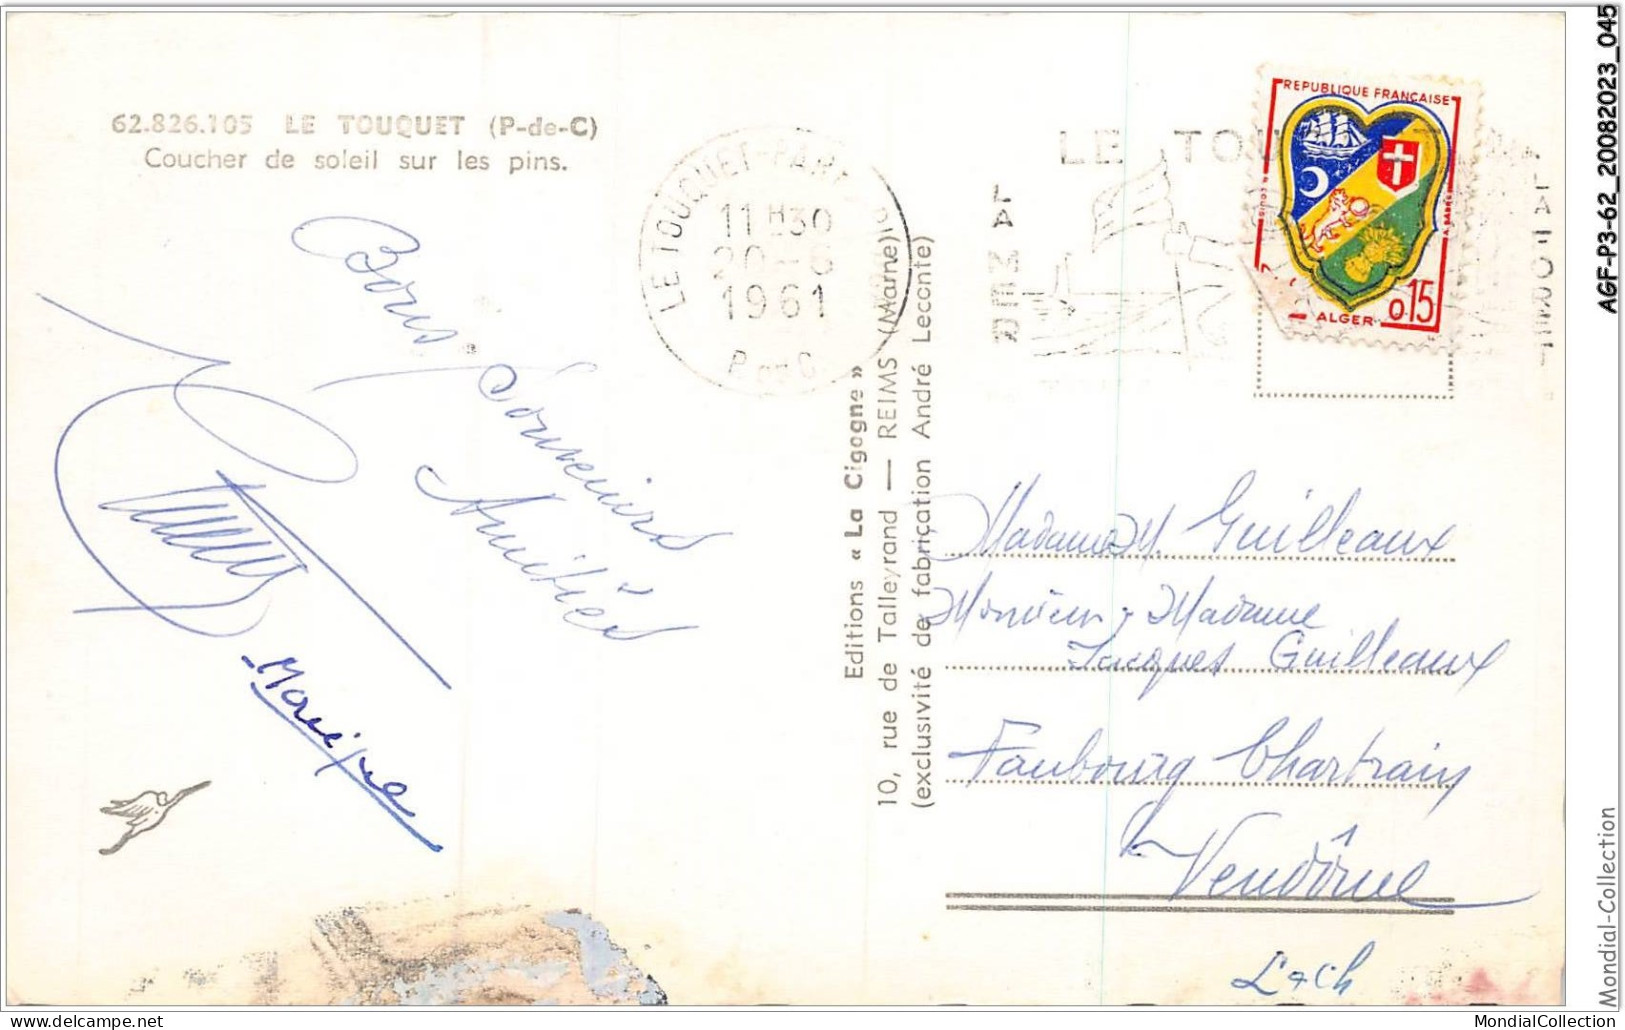 62.826.105 LE TOUQUET (P-de-C)
Coucher de soleil sur les pins.
Bons Souvenirs
Amitiés
Monique
LE TOUQUET-PARI
11 H 30
20-6
1961
P. de C.
LE TOU
LA MER
LA FORET
REPUBLIQUE FRANÇAISE
ALGER
0,15
Editions « La Cigogne »
10, rue de Talleyrand — REIMS (Marne)
(exclusivité de fabrication André Leconte)
Madame M. Guilleaux
Monsieur, Madame
Jacques Guilleaux
Faubourg Chartrain
Vendôme
L & Ch
AGF-P3-62_20082023_045
Mondial-Collection
delcampe.net
MondialCollection